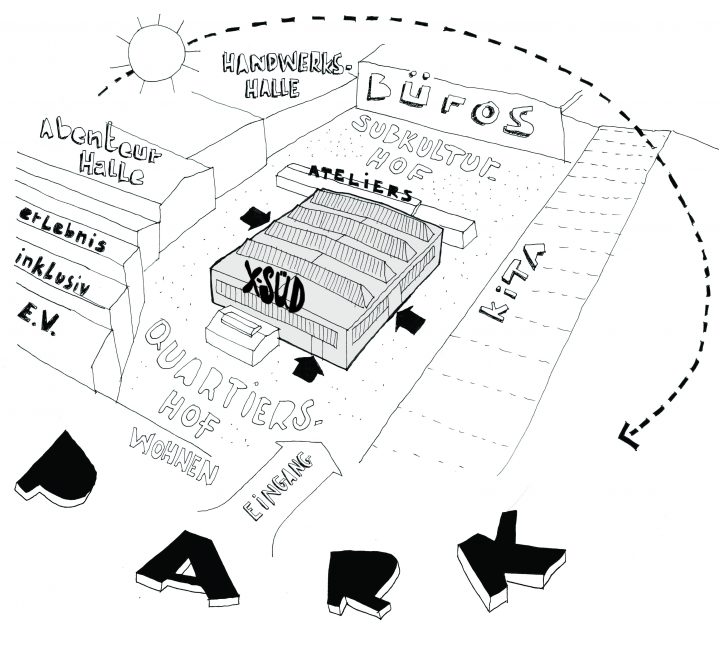 HANDWERKS-
HALLE
BÜROS
SUBKULTUR-
HOF
Abenteur
Halle
ATELIERS
erLebnis
inklusiv
E.V.
X-SÜD
KiTA
QUARTIERS-
HOF
WOHNEN
EINGANG
PARK